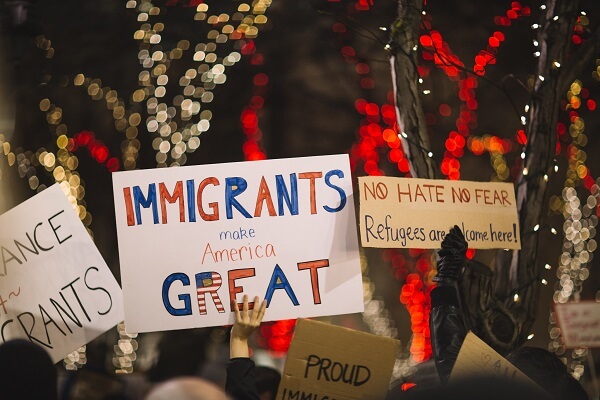 IMMIGRANTS
make
America
GREAT
NO HATE NO FEAR
Refugees are welcome here!
PROUD